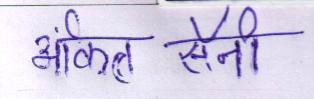 अंकित सैनी